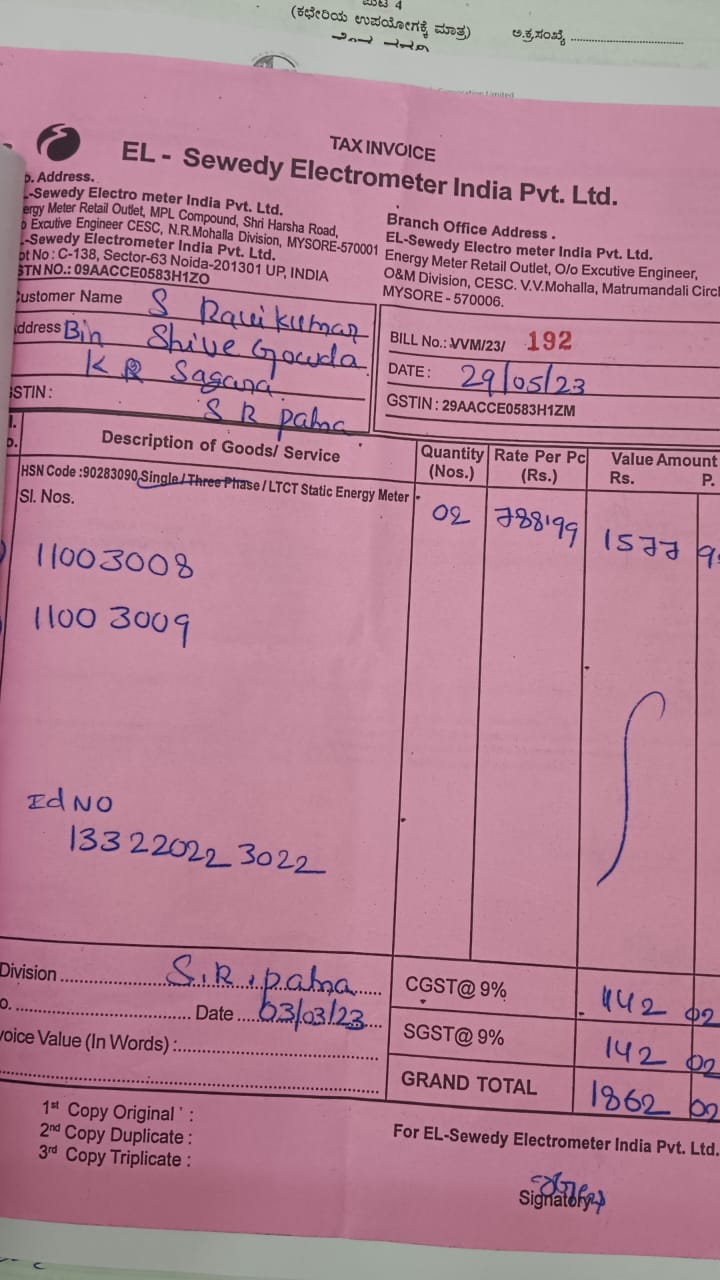 (ಕಛೇರಿಯ ಉಪಯೋಗಕ್ಕೆ ಮಾತ್ರ)
ಅ.ಕ್ರ.ಸಂಖ್ಯೆ
TAX INVOICE
EL - Sewedy Electrometer India Pvt. Ltd.
Address.
-Sewedy Electro meter India Pvt. Ltd.
ergy Meter Retail Outlet, MPL Compound, Shri Harsha Road,
Excutive Engineer CESC, N.R.Mohalla Division, MYSORE-570001
-Sewedy Electrometer India Pvt. Ltd.
ot No : C-138, Sector-63 Noida-201301 UP, INDIA
STN NO.: 09AACCE0583H1ZO
Branch Office Address .
EL-Sewedy Electro meter India Pvt. Ltd.
Energy Meter Retail Outlet, O/o Excutive Engineer,
O&M Division, CESC. V.V.Mohalla, Matrumandali Circl
MYSORE - 570006.
ustomer Name S Ravikumar
ddress Bin Shive Gowda
K R Sagara
STIN : S R patna
BILL No.: VVM/23/ 192
DATE : 29/05/23
GSTIN : 29AACCE0583H1ZM
Description of Goods/ Service
Quantity (Nos.)
Rate Per Pc (Rs.)
Value Amount
Rs. P.
HSN Code :90283090 Single / Three Phase / LTCT Static Energy Meter
Sl. Nos.
02 788.99 1577 9
11003008
11003009
Ed NO
133220223022
Division S.R.patna
CGST@ 9% 142 02
o. Date 03/03/23
SGST@ 9% 142 02
voice Value (In Words) :
GRAND TOTAL 1862 02
1st Copy Original :
2nd Copy Duplicate :
3rd Copy Triplicate :
For EL-Sewedy Electrometer India Pvt. Ltd.
Signatory